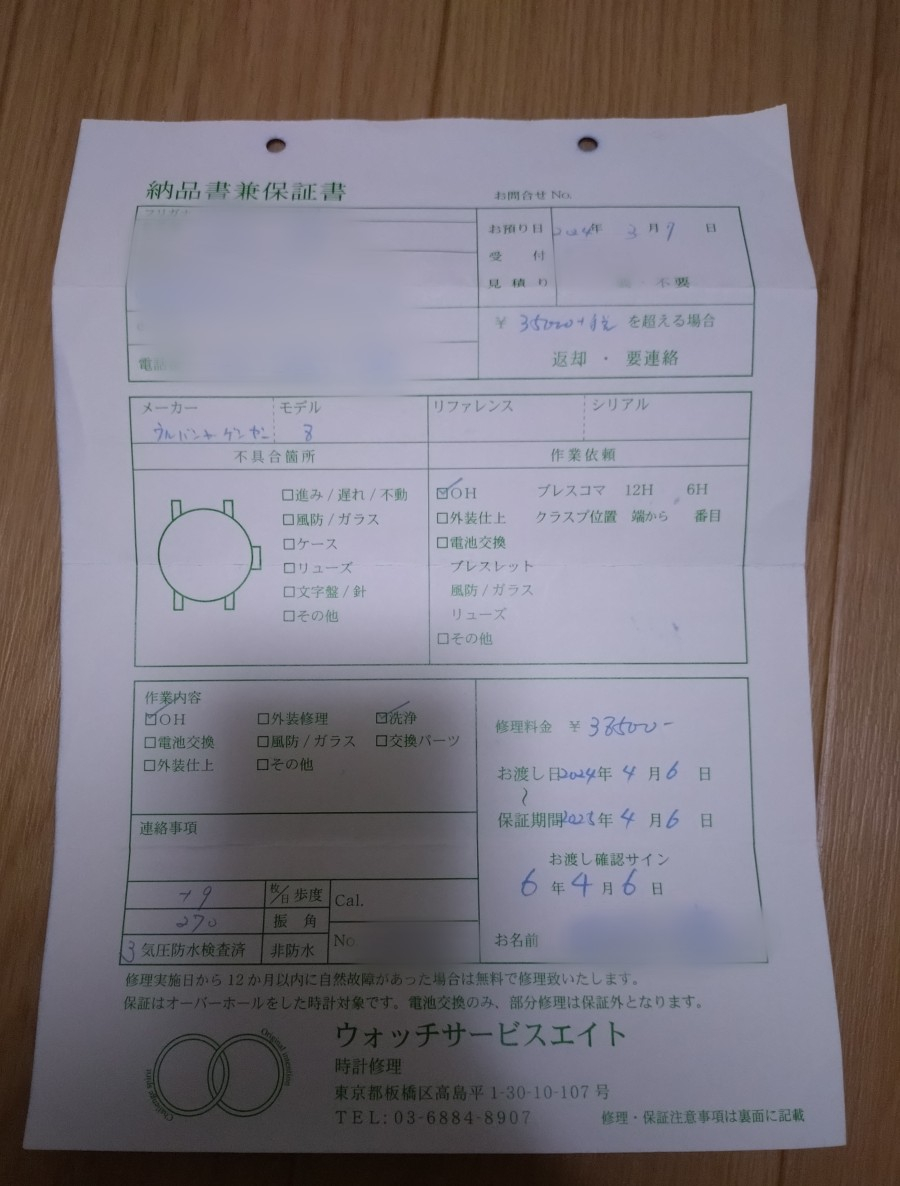 納品書兼保証書
お問合せ No.
フリガナ
お預り日 2024年 3月9日
受付
見積り 不要
¥ 35000+税 を超える場合
返却 ・ 要連絡
電話
メーカー モデル リファレンス シリアル
ウルバンヤーゲンセン 8
不具合箇所 作業依頼
□進み / 遅れ / 不動
□風防 / ガラス
□ケース
□リューズ
□文字盤 / 針
□その他
☑OH ブレスコマ 12H 6H
□外装仕上 クラスプ位置 端から 番目
□電池交換
ブレスレット
風防 / ガラス
リューズ
□その他
作業内容
☑OH □外装修理 ☑洗浄
□電池交換 □風防 / ガラス □交換パーツ
□外装仕上 □その他
修理料金 ¥ 38500-
お渡し日2024年 4月6日
~
保証期間2025年 4月6日
連絡事項
お渡し確認サイン
6年4月6日
お名前
+9 枚/日 歩度 Cal.
270 振角
3気圧防水検査済 非防水 No.
修理実施日から 12 か月以内に自然故障があった場合は無料で修理致いたします。
保証はオーバーホールをした時計対象です。電池交換のみ、部分修理は保証外となります。
Original intention
Challenge spirits
ウォッチサービスエイト
時計修理
東京都板橋区高島平 1-30-10-107 号
TEL:03-6884-8907
修理・保証注意事項は裏面に記載